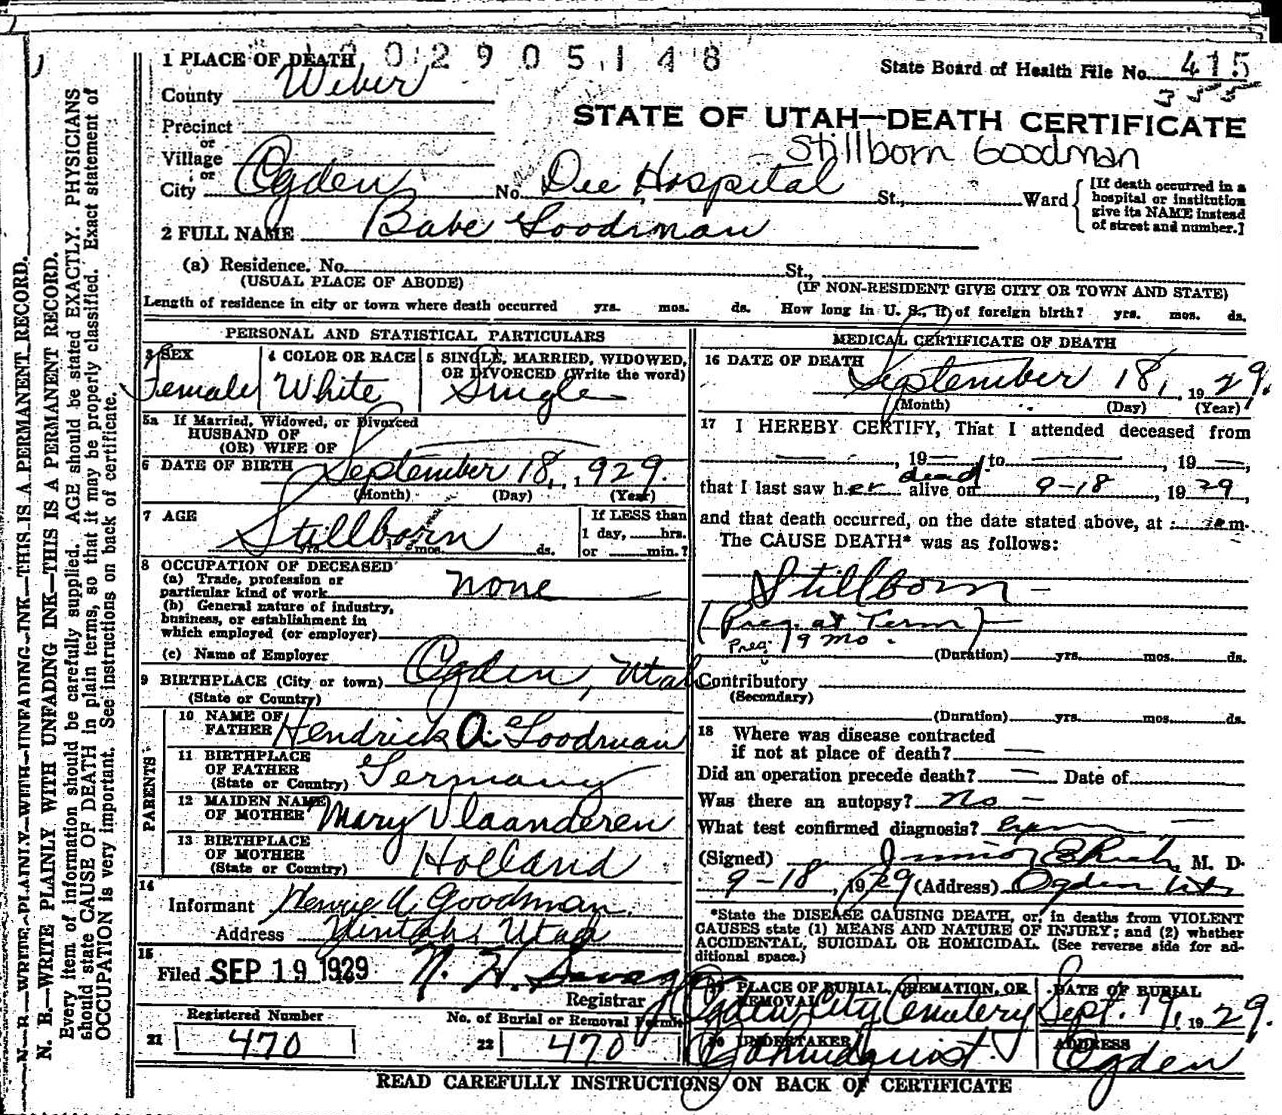 1 PLACE OF DEATH 2 9 0 5 1 4 8
State Board of Health File No. 415
355
County Weber
STATE OF UTAH—DEATH CERTIFICATE
Precinct
or
Village
Stillborn Goodman
or
City Ogden No. Dee Hospital St., Ward
[If death occurred in a
hospital or institution
give its NAME instead
of street and number.]
2 FULL NAME Babe Goodman
(a) Residence. No. St.,
(USUAL PLACE OF ABODE) (IF NON-RESIDENT GIVE CITY OR TOWN AND STATE)
Length of residence in city or town where death occurred yrs. mos. ds. How long in U. S., if of foreign birth? yrs. mos. ds.
PERSONAL AND STATISTICAL PARTICULARS
3 SEX
Female
4 COLOR OR RACE
White
5 SINGLE, MARRIED, WIDOWED,
OR DIVORCED (Write the word)
Single
5a If Married, Widowed, or Divorced
HUSBAND OF
(OR) WIFE OF
6 DATE OF BIRTH September 18, 1929.
(Month) (Day) (Year)
7 AGE
Stillborn
yrs. mos. ds.
If LESS than
1 day, hrs.
or min.?
8 OCCUPATION OF DECEASED
(a) Trade, profession or
particular kind of work none
(b) General nature of industry,
business, or establishment in
which employed (or employer)
(c) Name of Employer
9 BIRTHPLACE (City or town) Ogden, Utah
(State or Country)
PARENTS
10 NAME OF
FATHER Hendrick A. Goodman
11 BIRTHPLACE
OF FATHER
(State or Country) Germany
12 MAIDEN NAME
OF MOTHER Mary Vlaanderen
13 BIRTHPLACE
OF MOTHER
(State or Country) Holland
14
Informant Henrie A Goodman.
Address Uintah, Utah
15
Filed SEP 19 1929
Registrar
Registered Number
21 470
No. of Burial or Removal Permit
22 470
MEDICAL CERTIFICATE OF DEATH
16 DATE OF DEATH
September 18, 1929.
(Month) (Day) (Year)
17 I HEREBY CERTIFY, That I attended deceased from
, 19 to , 19 ,
that I last saw her dead alive on 9-18, 1929,
and that death occurred, on the date stated above, at m.
The CAUSE DEATH* was as follows:
Stillborn
(Preg. at Term)
Preg. 9 mo.
(Duration) yrs. mos. ds.
Contributory
(Secondary)
(Duration) yrs. mos. ds.
18 Where was disease contracted
if not at place of death?
Did an operation precede death? Date of
Was there an autopsy? No
What test confirmed diagnosis?
(Signed) Junior E Rich, M. D.
9-18, 1929 (Address) Ogden Utah
*State the DISEASE CAUSING DEATH, or, in deaths from VIOLENT
CAUSES state (1) MEANS AND NATURE OF INJURY; and (2) whether
ACCIDENTAL, SUICIDAL OR HOMICIDAL. (See reverse side for ad-
ditional space.)
19 PLACE OF BURIAL, CREMATION, OR
REMOVAL
Ogden City Cemetery
DATE OF BURIAL
Sept. 19, 1929.
20 UNDERTAKER
Lindquist
ADDRESS
Ogden
READ CAREFULLY INSTRUCTIONS ON BACK OF CERTIFICATE
N. B.—WRITE PLAINLY WITH UNFADING INK—THIS IS A PERMANENT RECORD.
N. B.—WRITE PLAINLY WITH UNFADING INK—THIS IS A PERMANENT RECORD.
Every item of information should be carefully supplied. AGE should be stated EXACTLY. PHYSICIANS
should state CAUSE OF DEATH in plain terms, so that it may be properly classified. Exact statement of
OCCUPATION is very important. See instructions on back of certificate.